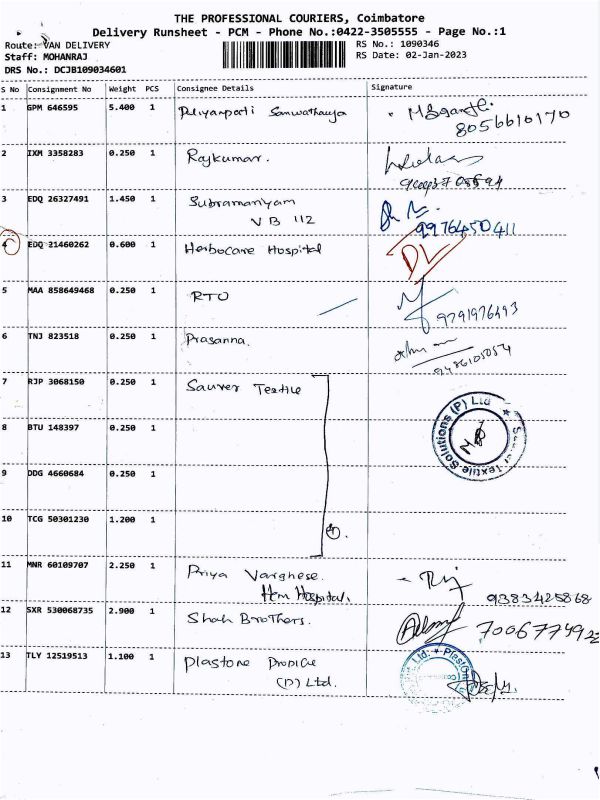 THE PROFESSIONAL COURIERS, Coimbatore
Delivery Runsheet - PCM - Phone No.:0422-3505555 - Page No.:1
Route: VAN DELIVERY
Staff: MOHANRAJ
DRS No.: DCJB109034601
RS No.: 1090346
RS Date: 02-Jan-2023
S No Consignment No Weight PCS Consignee Details Signature
1 GPM 646595 5.400 1
8056610170
2 IXM 3358283 0.250 1 Rajkumar.
3 EDQ 26327491 1.450 1 Subramaniyam
VB 112
9976450411
4 EDQ 21460262 0.600 1 Herbocare Hospital DL
5 MAA 858649468 0.250 1 RTO
9791976493
6 TNJ 823518 0.250 1 Prasanna.
9486105054
7 RJP 3068150 0.250 1 Saurer Textile
Textile Solutions (P) Ltd
8 BTU 148397 0.250 1
9 DDG 4660684 0.250 1
10 TCG 50301230 1.200 1
4.
11 MNR 60109707 2.250 1 Priya Varghese.
Hospital,
9383425868
12 SXR 530068735 2.900 1 Shah Brothers.
7006774922
13 TLY 12519513 1.100 1 Plastone
(P) Ltd.